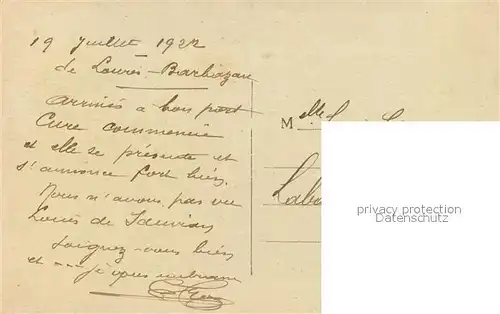 19 Juillet 1922
de Loures-Barbazan
arrivés à bon port
Cure commencée
et elle se présente et
s'annonce fort bien.
Nous n'avons pas vu
Louis de
Soignez-vous bien
et --- je vous embrasse
Melle
privacy protection